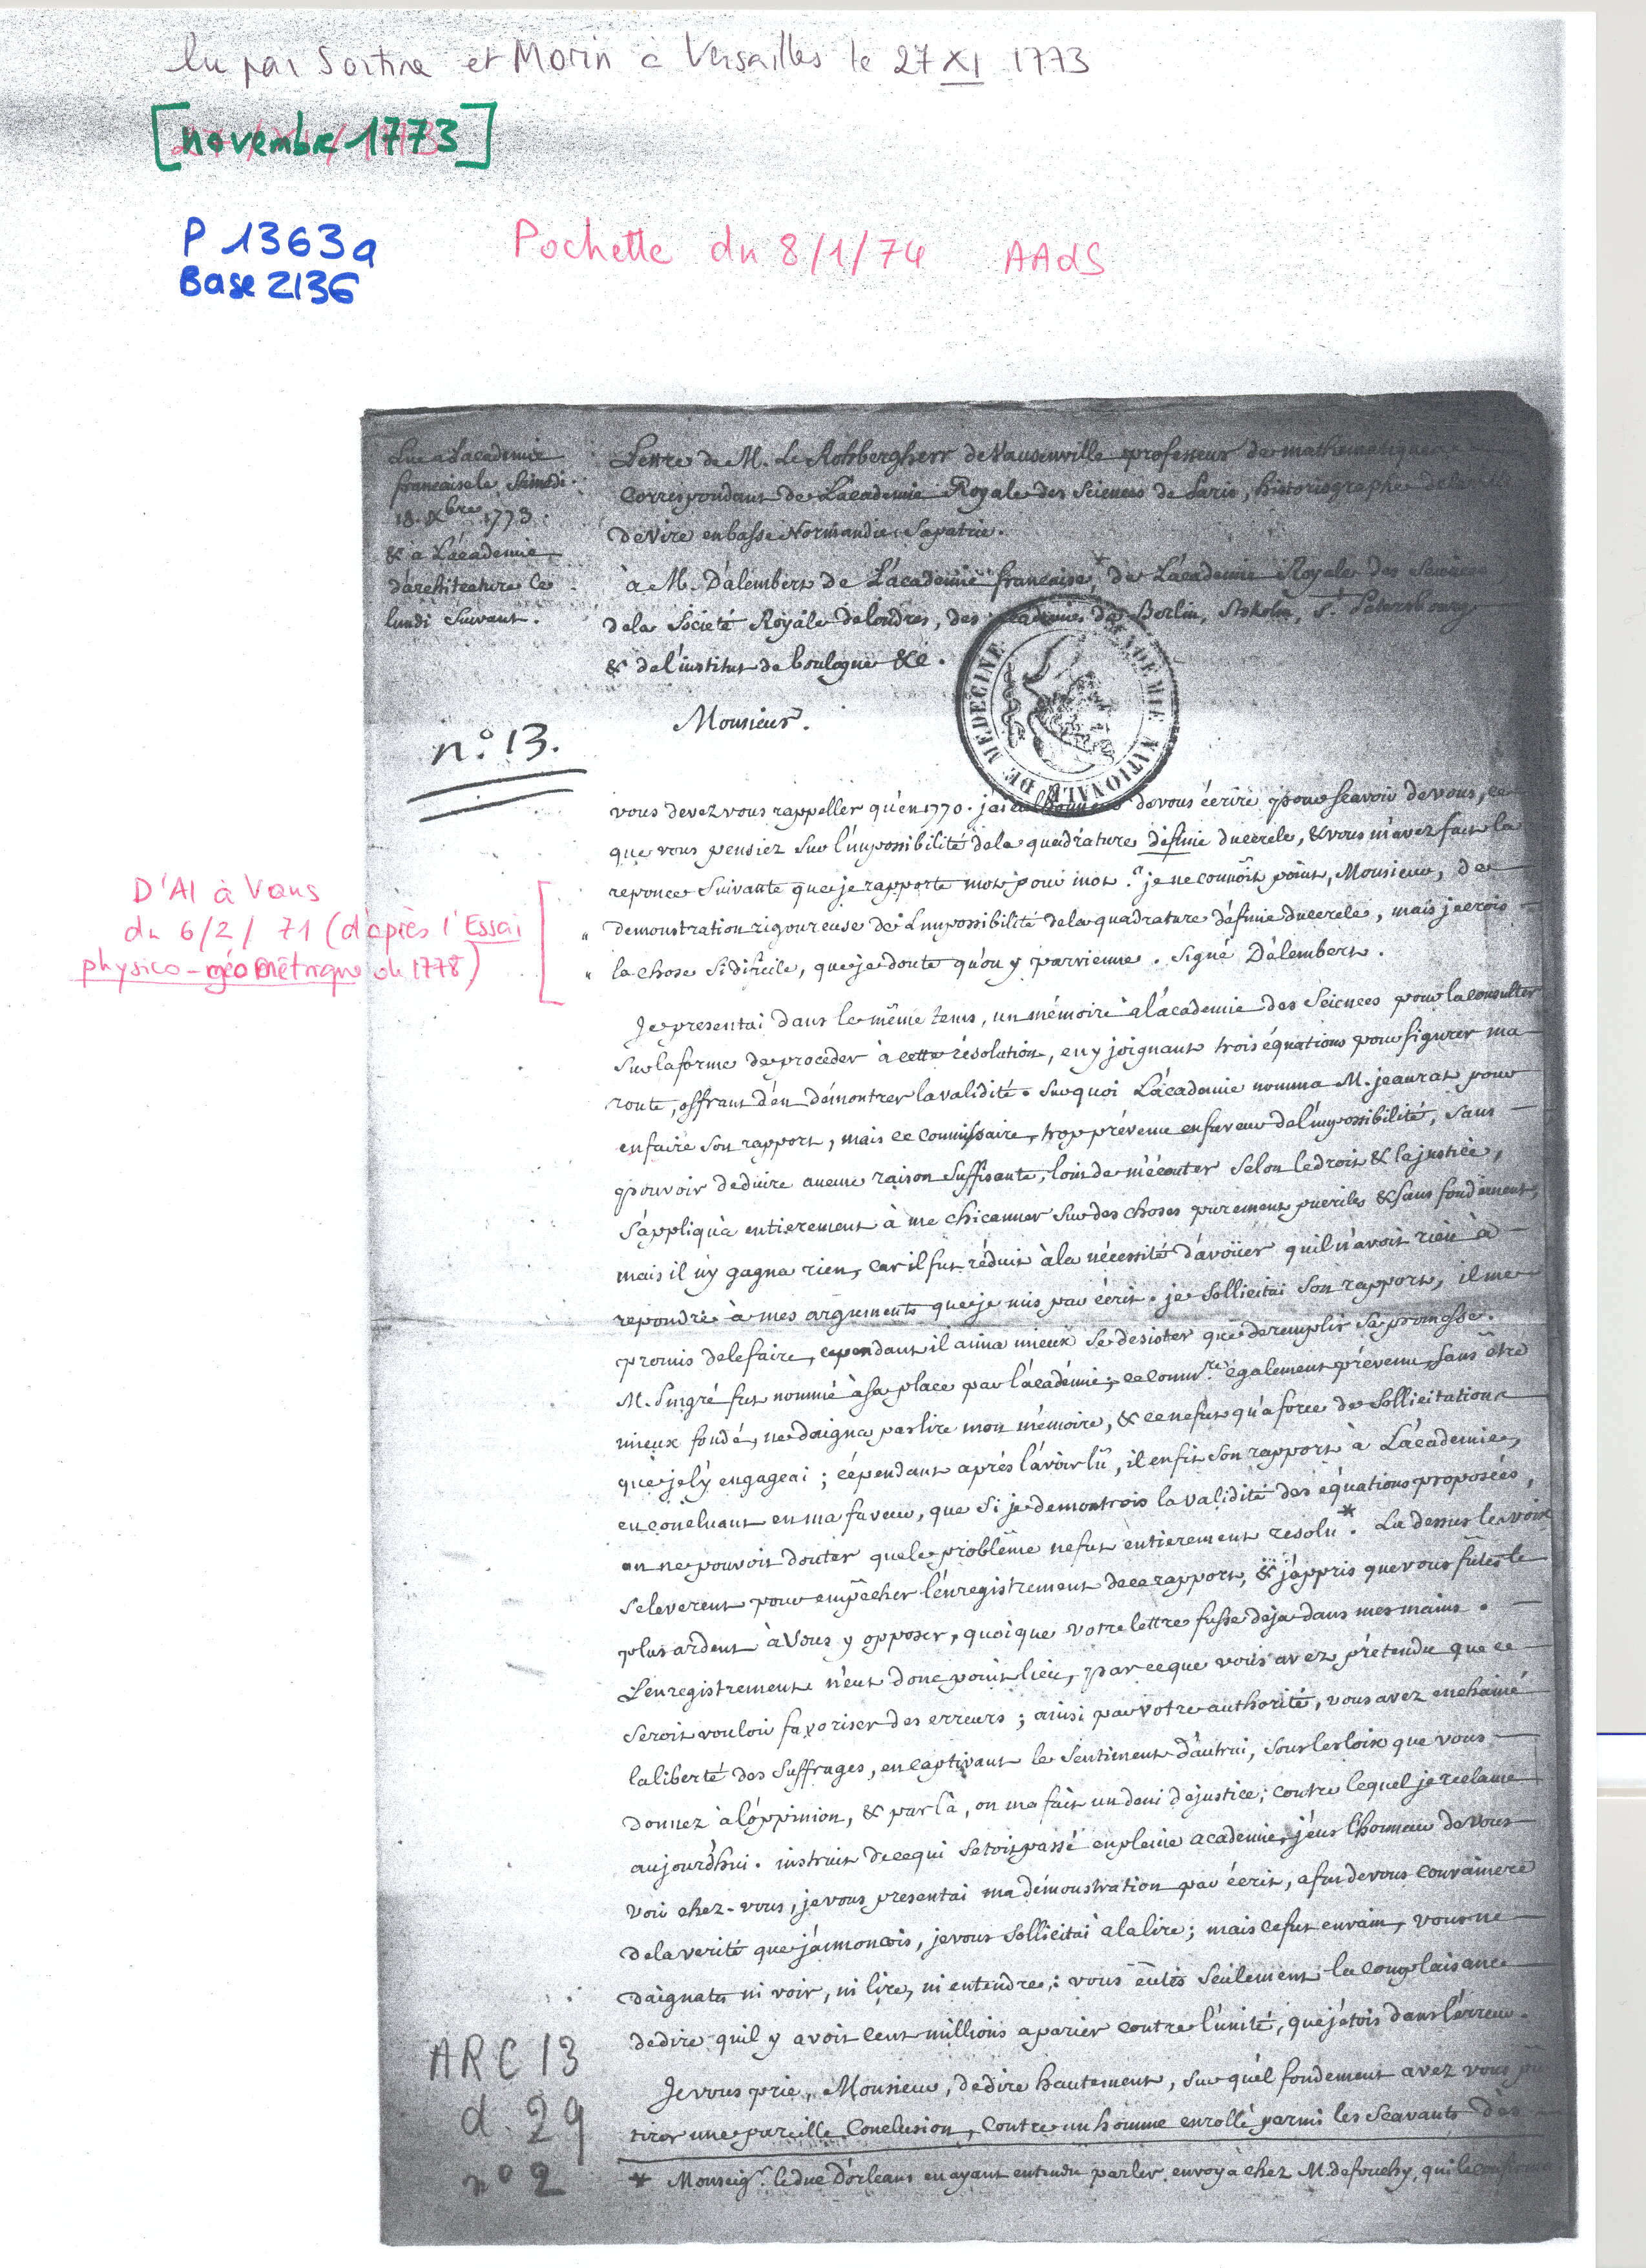 lu par Sartine et Morin à Versailles le 27 XI 1773
[novembre 1773]
P 1363a
Base 2136
Pochette du 8/1/74 AAdS
Lue a L'academie
francaise le Samedi
18. Xbre 1773.
& a L'academie
d'architecture le
lundi Suivant.
Lettre de M. Le Rohbergherr de Vausenville professeur de mathematiques
Correspondant de L'academie Royale des Sciences de Paris, historiographe de la
de Vire en basse Normandie Sa patrie.
à M. D'alembert de L'academie francaise, de L'academie Royale des Sciences
de la Societé Royale de londres, des academies de Berlin, Stokolm, St. Petersbourg
& de l'institut de boulogne &c.
ACADEMIE NATIONALE DE MEDECINE
n.° 13.
Monsieur.
vous devez vous rappeller qu'en 1770. j'ai eu l'honneur de vous écrire pour scavoir de vous, ce
que vous pensiez Sur l'impossibilité de la quadrature définie du cercle, & vous m'avez fait la
reponce Suivante que je rapporte mot pour mot. "je ne connois point, Monsieur, de
" demonstration rigoureuse de L'impossibilité de la quadrature définie du cercle, mais je crois
" la chose Si dificile, que je doute qu'on y parvienne. Signé D'alembert.
D'Al à Vaus
du 6/2/71 (d'après l'Essai
physico-géométrique de 1778)
Je presentai dans le même tems, un mémoire à l'academie des Sciences pour la consulter
Sur la forme de proceder à cette résolution, en y joignant trois équations pour figurer ma
route, offrant d'en démontrer la validité. Sur quoi L'academie nomma M. jeaurat pour
en faire Son rapport, mais ce commissaire, trop prévenu en faveur de l'impossibilité, Sans
pouvoir deduire aucune raison Suffisante, loin de m'écouter Selon le droit & la justice,
S'appliqua entierement à me chicanner Sur des choses purement pueriles & Sans fondement,
mais il n'y gagna rien, car il fut réduit à la nécessité d'avoüer qu'il n'avoit rien à
repondre à mes arguments que je mis par écrit. je Sollicitai Son rapport, il me
promis de le faire, cependant il aima mieux Se desister que de remplir Sa promesse.
M. Pingré fut nommé à Sa place par l'académie; ce commre. également prévenu, Sans être
mieux fondé, ne daigna pas lire mon mémoire, & ce ne fut qu'a force de Sollicitations
que je l'y engageai; cépendant après l'avoir lû, il en fit Son rapport à L'academie,
en concluant en ma faveur, que Si je demontrois la validité des équations proposées,
on ne pouvoit douter que le problême ne fut entierement résolu*. La dessus les voix
S'eleverent pour empêcher l'énregistrement de ce rapport, & j'appris que vous fûtes le
plus ardent à Vous y opposer, quoique votre lettre fusse deja dans mes mains.
L'enregistrement n'eut donc point lieu, parceque vous avez prétendu que ce
Seroit vouloir favoriser des erreurs; ainsi par votre authorité, vous avez enchainé
la liberté des Suffrages, en captivant le Sentiment d'autrui, Sous les loix que vous
donnez à l'oppinion, & par là, on m'a fait un deni de justice; contre lequel je reclame
aujourd'hui. instruit de ce qui S'etoit passé en pleine academie, j'eus l'honneur de vous
voir chez-vous, je vous presentai ma démonstration par écrit, afin de vous convaincre
de la verité que j'annoncois, je vous Sollicitai à la lire; mais ce fut en vain, vous ne
daignates ni voir, ni lire, ni entendre; vous eûtes Seulement la complaisance
de dire qu'il y avoit cent millions a parier contre l'unité, que j'étois dans l'érreur.
Je vous prie, Monsieur, de dire hautement, Sur quél fondement avez vous pu
tirer une pareille Conclusion, Contre un homme enrollé parmi les Scavants des
* Monseigr. le duc D'orleans en ayant entendu parler, envoya chez M. de fouchy, qui le confirma.
ARC 13
d. 29
n° 2